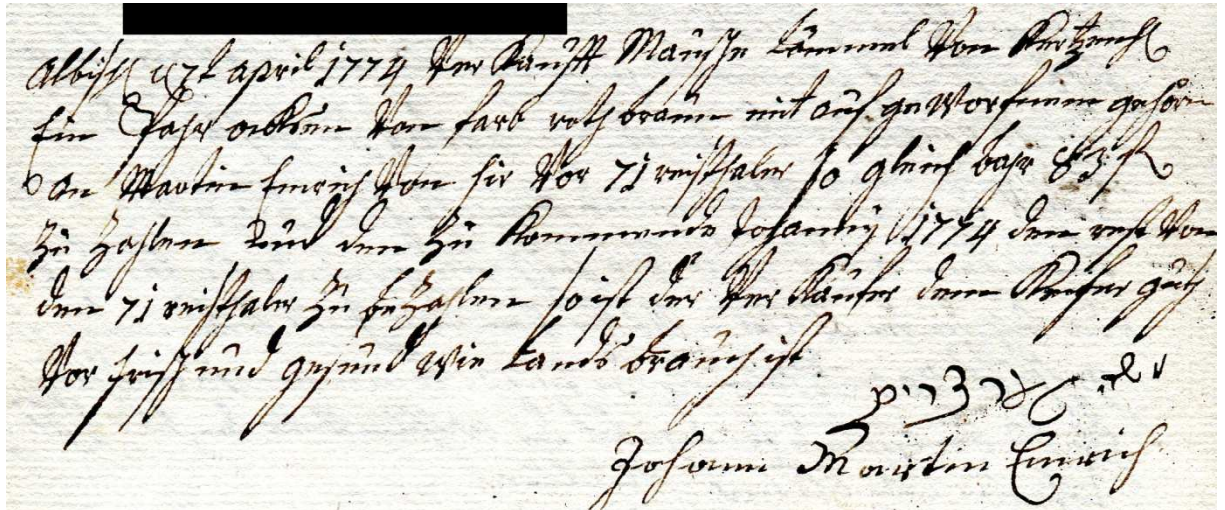 Albisch 17t april 1774 Verkaufft Mausche Lämmel Von Kertzenh
Ein Pahr ocksen Von farb rothbraun mit auf geworfenem gehörn
an Martin Emrich Von hir Vor 71 reichsthaler so gleich bahr 83 fl
zu zahlen und den zu kommende Johanny 1774 den rest Von
den 71 reichsthaler zu bezahlen so ist der Verkäufer dem Keufer guth
Vor frisch und gesund wie Lands brauch ist
Johann Martin Emrich